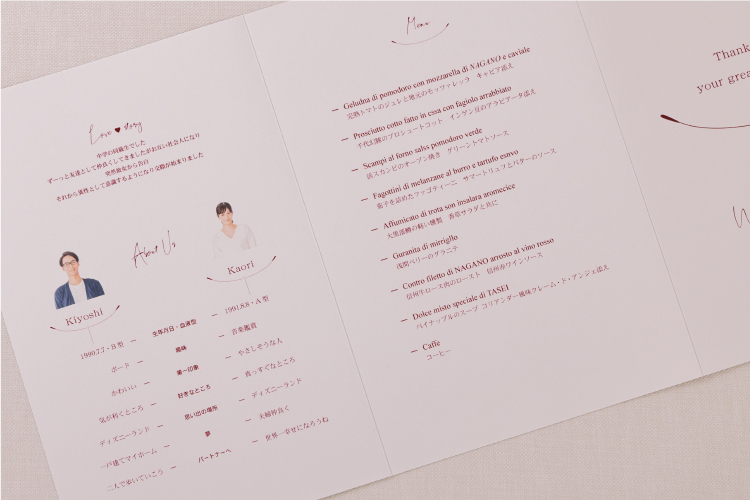 Love ♥ story
中学の同級生でした
ずーっと友達として仲良くしてきましたがお互い社会人になり
突然彼女から告白
それから異性として意識するようになり交際が始まりました
About Us
Kiyoshi
Kaori
1990.7.7・B型 ー 生年月日・血液型 ー 1991.8.8・A型
ボード ー 趣味 ー 音楽鑑賞
かわいい ー 第一印象 ー やさしそうな人
気が利くところ ー 好きなところ ー 真っすぐなところ
ディズニーランド ー 思い出の場所 ー ディズニーランド
一戸建てマイホーム ー 夢 ー 夫婦仲良く
二人で歩いていこう ー パートナーへ ー 世界一幸せになろうね
Menu
ー Geludna di pomodoro con mozzarella di NAGANO e caviale
完熟トマトのジュレと地元のモッツァレッラ キャビア添え
ー Prosciutto cotto fatto in casa con fagiolo arrabbiato
千代幻豚のプロシュートコット インゲン豆のアラビアータ添え
ー Scampi al forno salsa pomodoro verde
活スカンピのオーブン焼き グリーントマトソース
ー Fagottini di melanzane al burro e tartufo estivo
茄子を詰めたファゴティーニ サマートリュフとバターのソース
ー Affumicato di trota son insalara aromecice
大黒部鱒の軽い燻製 香草サラダと共に
ー Guranita di mirriglio
浅間ベリーのグラニテ
ー Contro filetto di NAGANO arrosto al vino rosso
信州牛ロース肉のロースト 信州赤ワインソース
ー Dolce misto speciale di TASEI
パイナップルのスープ コリアンダー風味クレーム・ド・アンジェ添え
ー Caffe
コーヒー
Thank
your grea